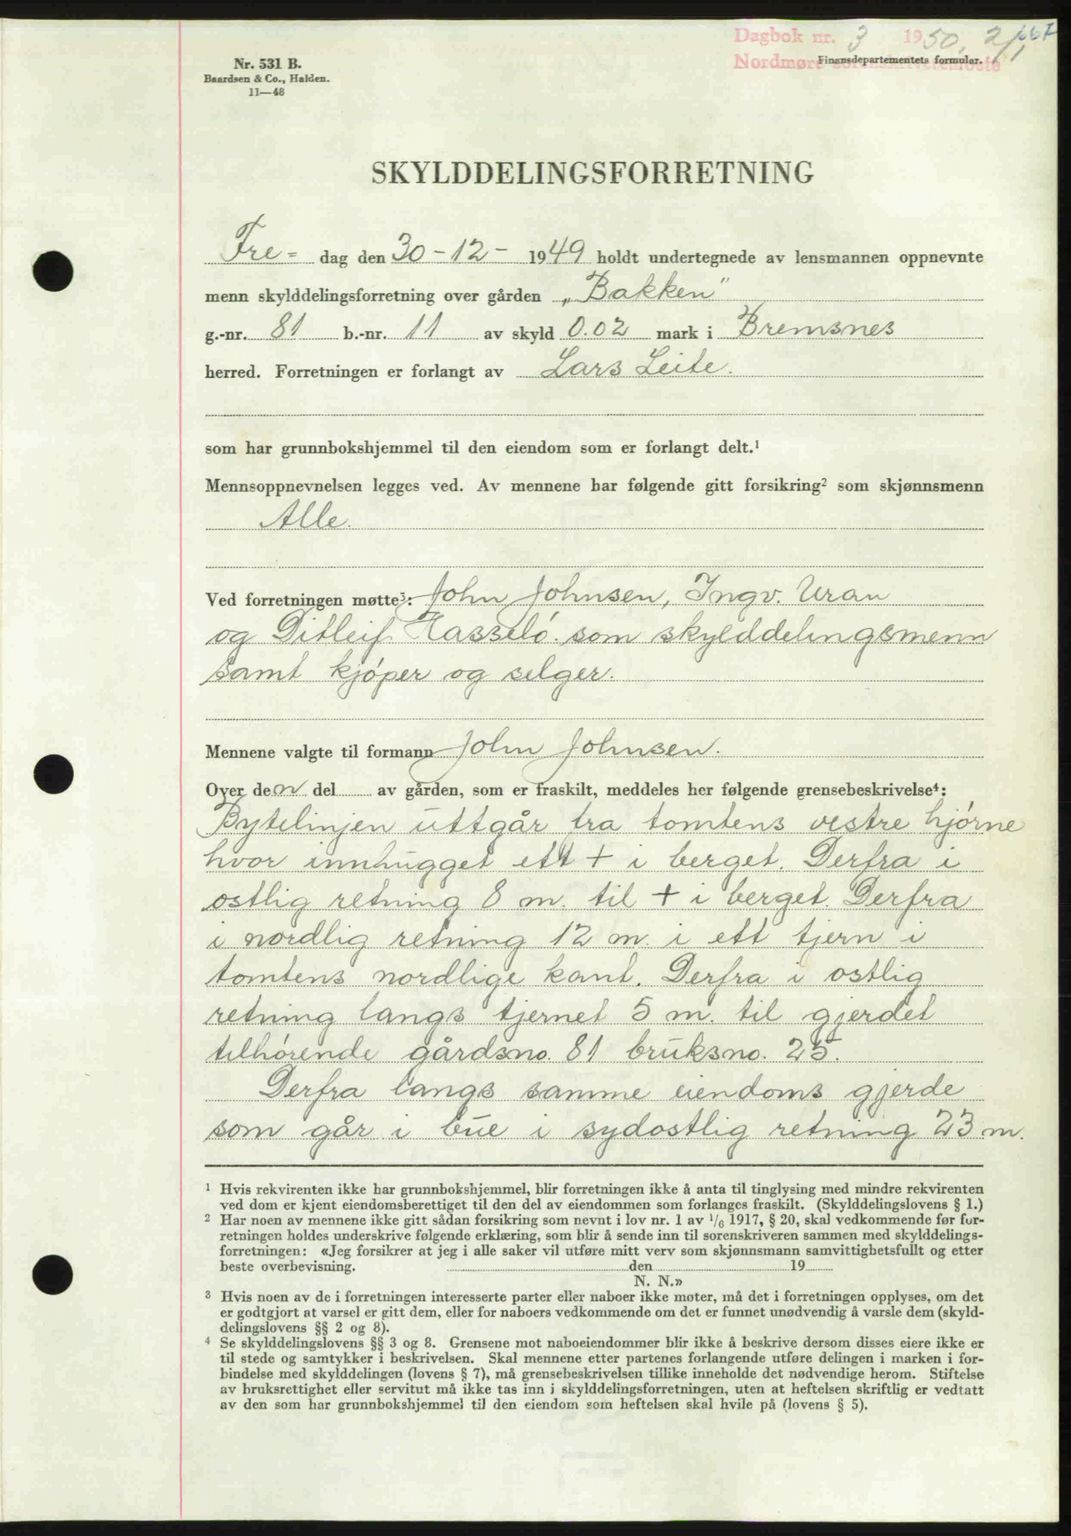 Dagbok nr. 3 1950, 2/1
Nordmøre sorenskriverembete
Nr. 531 B.
Baardsen & Co., Halden.
11—48
Finansdepartementets formular.
SKYLDDELINGSFORRETNING
Fre= dag den 30-12- 1949 holdt undertegnede av lensmannen oppnevnte
menn skylddelingsforretning over gården „Bakken"
g.-nr. 81 b.-nr. 11 av skyld 0.02 mark i Bremsnes
herred. Forretningen er forlangt av Lars Leite.
som har grunnbokshjemmel til den eiendom som er forlangt delt.¹
Mennsoppnevnelsen legges ved. Av mennene har følgende gitt forsikring² som skjønnsmenn
Alle.
Ved forretningen møtte³: John Johnsen, Ingv. Uran
og Ditleif Hasselø. som skylddelingsmenn
samt kjøper og selger.
Mennene valgte til formann John Johnsen.
Over den del av gården, som er fraskilt, meddeles her følgende grensebeskrivelse⁴:
Bytelinjen uttgår fra tomtens vestre hjørne
hvor innhugget ett + i berget. Derfra i
østlig retning 8 m. til + i berget. Derfra
i nordlig retning 12 m. i ett tjern i
tomtens nordlige kant. Derfra i østlig
retning langs tjernet 5 m. til gjerdet
tilhørende gårdsno. 81 bruksno. 25.
Derfra langs samme eiendoms gjerde
som går i bue i sydøstlig retning 23 m.
¹ Hvis rekvirenten ikke har grunnbokshjemmel, blir forretningen ikke å anta til tinglysing med mindre rekvirenten
ved dom er kjent eiendomsberettiget til den del av eiendommen som forlanges fraskilt. (Skylddelingslovens § 1.)
² Har noen av mennene ikke gitt sådan forsikring som nevnt i lov nr. 1 av 1/6 1917, § 20, skal vedkommende før for-
retningen holdes underskrive følgende erklæring, som blir å sende inn til sorenskriveren sammen med skylddelings-
forretningen: «Jeg forsikrer at jeg i alle saker vil utføre mitt verv som skjønnsmann samvittighetsfullt og etter
beste overbevisning. den 19
N. N.»
³ Hvis noen av de i forretningen interesserte parter eller naboer ikke møter, må det i forretningen opplyses, om det
er godtgjort at varsel er gitt dem, eller for naboers vedkommende om det er funnet unødvendig å varsle dem (skyld-
delingslovens §§ 2 og 8).
⁴ Se skylddelingslovens §§ 3 og 8. Grensene mot naboeiendommer blir ikke å beskrive dersom disses eiere ikke er
til stede og samtykker i beskrivelsen. Skal mennene etter partenes forlangende utføre delingen i marken i for-
bindelse med skylddelingen (lovens § 7), må grensebeskrivelsen tillike inneholde det nødvendige herom. Stiftelse
av bruksrettighet eller servitut må ikke tas inn i skylddelingsforretningen, uten at heftelsen skriftlig er vedtatt
av den som har grunnbokshjemmel til den eiendom som heftelsen skal hvile på (lovens § 5).